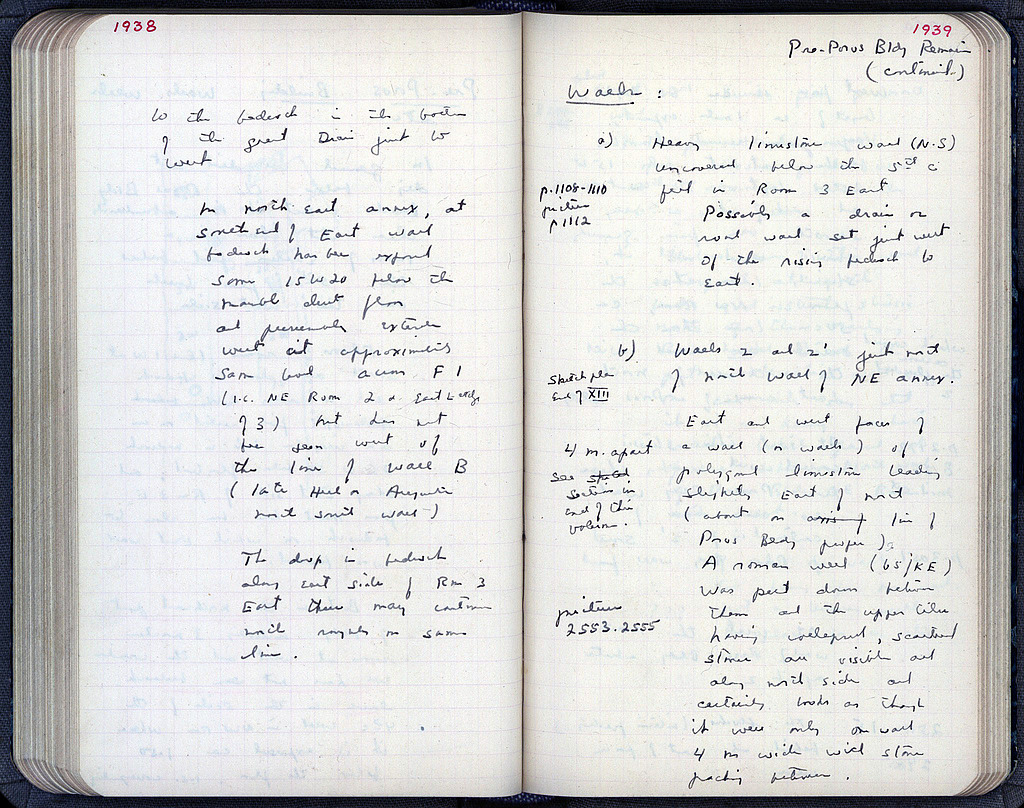 1938
to the bedrock in the bottom
of the great Drain just to
west
In north East annex, at
south end of East wall
bedrock has been exposed
some 15 to 20 below the
marble chip floor
and presumably extends
west at approximately
same level across F 1
(i.e. NE Room 2 & East edge
of 3) but does not
be seen west of
the line of Wall B
(late Hell or Augustan
north south wall)
The drop in bedrock
along East side of Rm 3
East then may continue
north roughly on same
line.
1939
Pre-Poros Bldg Remains
(continued)
Walls:
a) Heavy limestone wall (N-S)
uncovered below the 5th c
fill in Room 3 East
p. 1108-1110
picture
p 1112
Possibly a drain or
wall set just west
of the rising bedrock to
East.
b) Walls 2 and 2' just north
of north wall of NE annex.
Sketch plan
End of XIII
East and west faces of
4 m. apart a wall (or walls) of
polygonal limestone leading
slightly East of north
(about on line of
Poros Bldg proper).
See
section in
end of this
volume.
A roman well (65/KE)
was put down between
them and the upper tiles
having collapsed, scattered
stones are visible all
along north side and
certainly looks as though
it were only one wall
4 m wide with stone
packing between.
picture
2553.2555